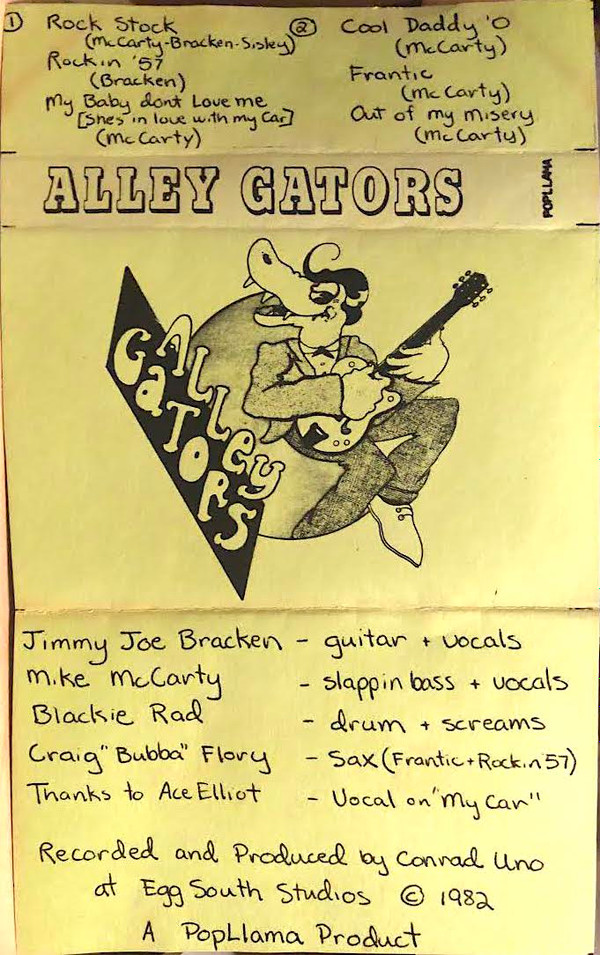 ① Rock Stock
(McCarty-Bracken-Sisley)
Rockin '57
(Bracken)
My Baby dont Love me
[She's in love with my Car]
(McCarty)
② Cool Daddy 'O
(McCarty)
Frantic
(McCarty)
Out of my misery
(McCarty)
ALLEY GATORS
POPLLAMA
ALLey
GaTORS
Jimmy Joe Bracken - guitar + vocals
Mike McCarty - slappin bass + vocals
Blackie Rad - drum + screams
Craig "Bubba" Flory - Sax (Frantic + Rockin '57)
Thanks to Ace Elliot - Vocal on "My Car"
Recorded and Produced by Conrad Uno
at Egg South Studios © 1982
A PopLlama Product